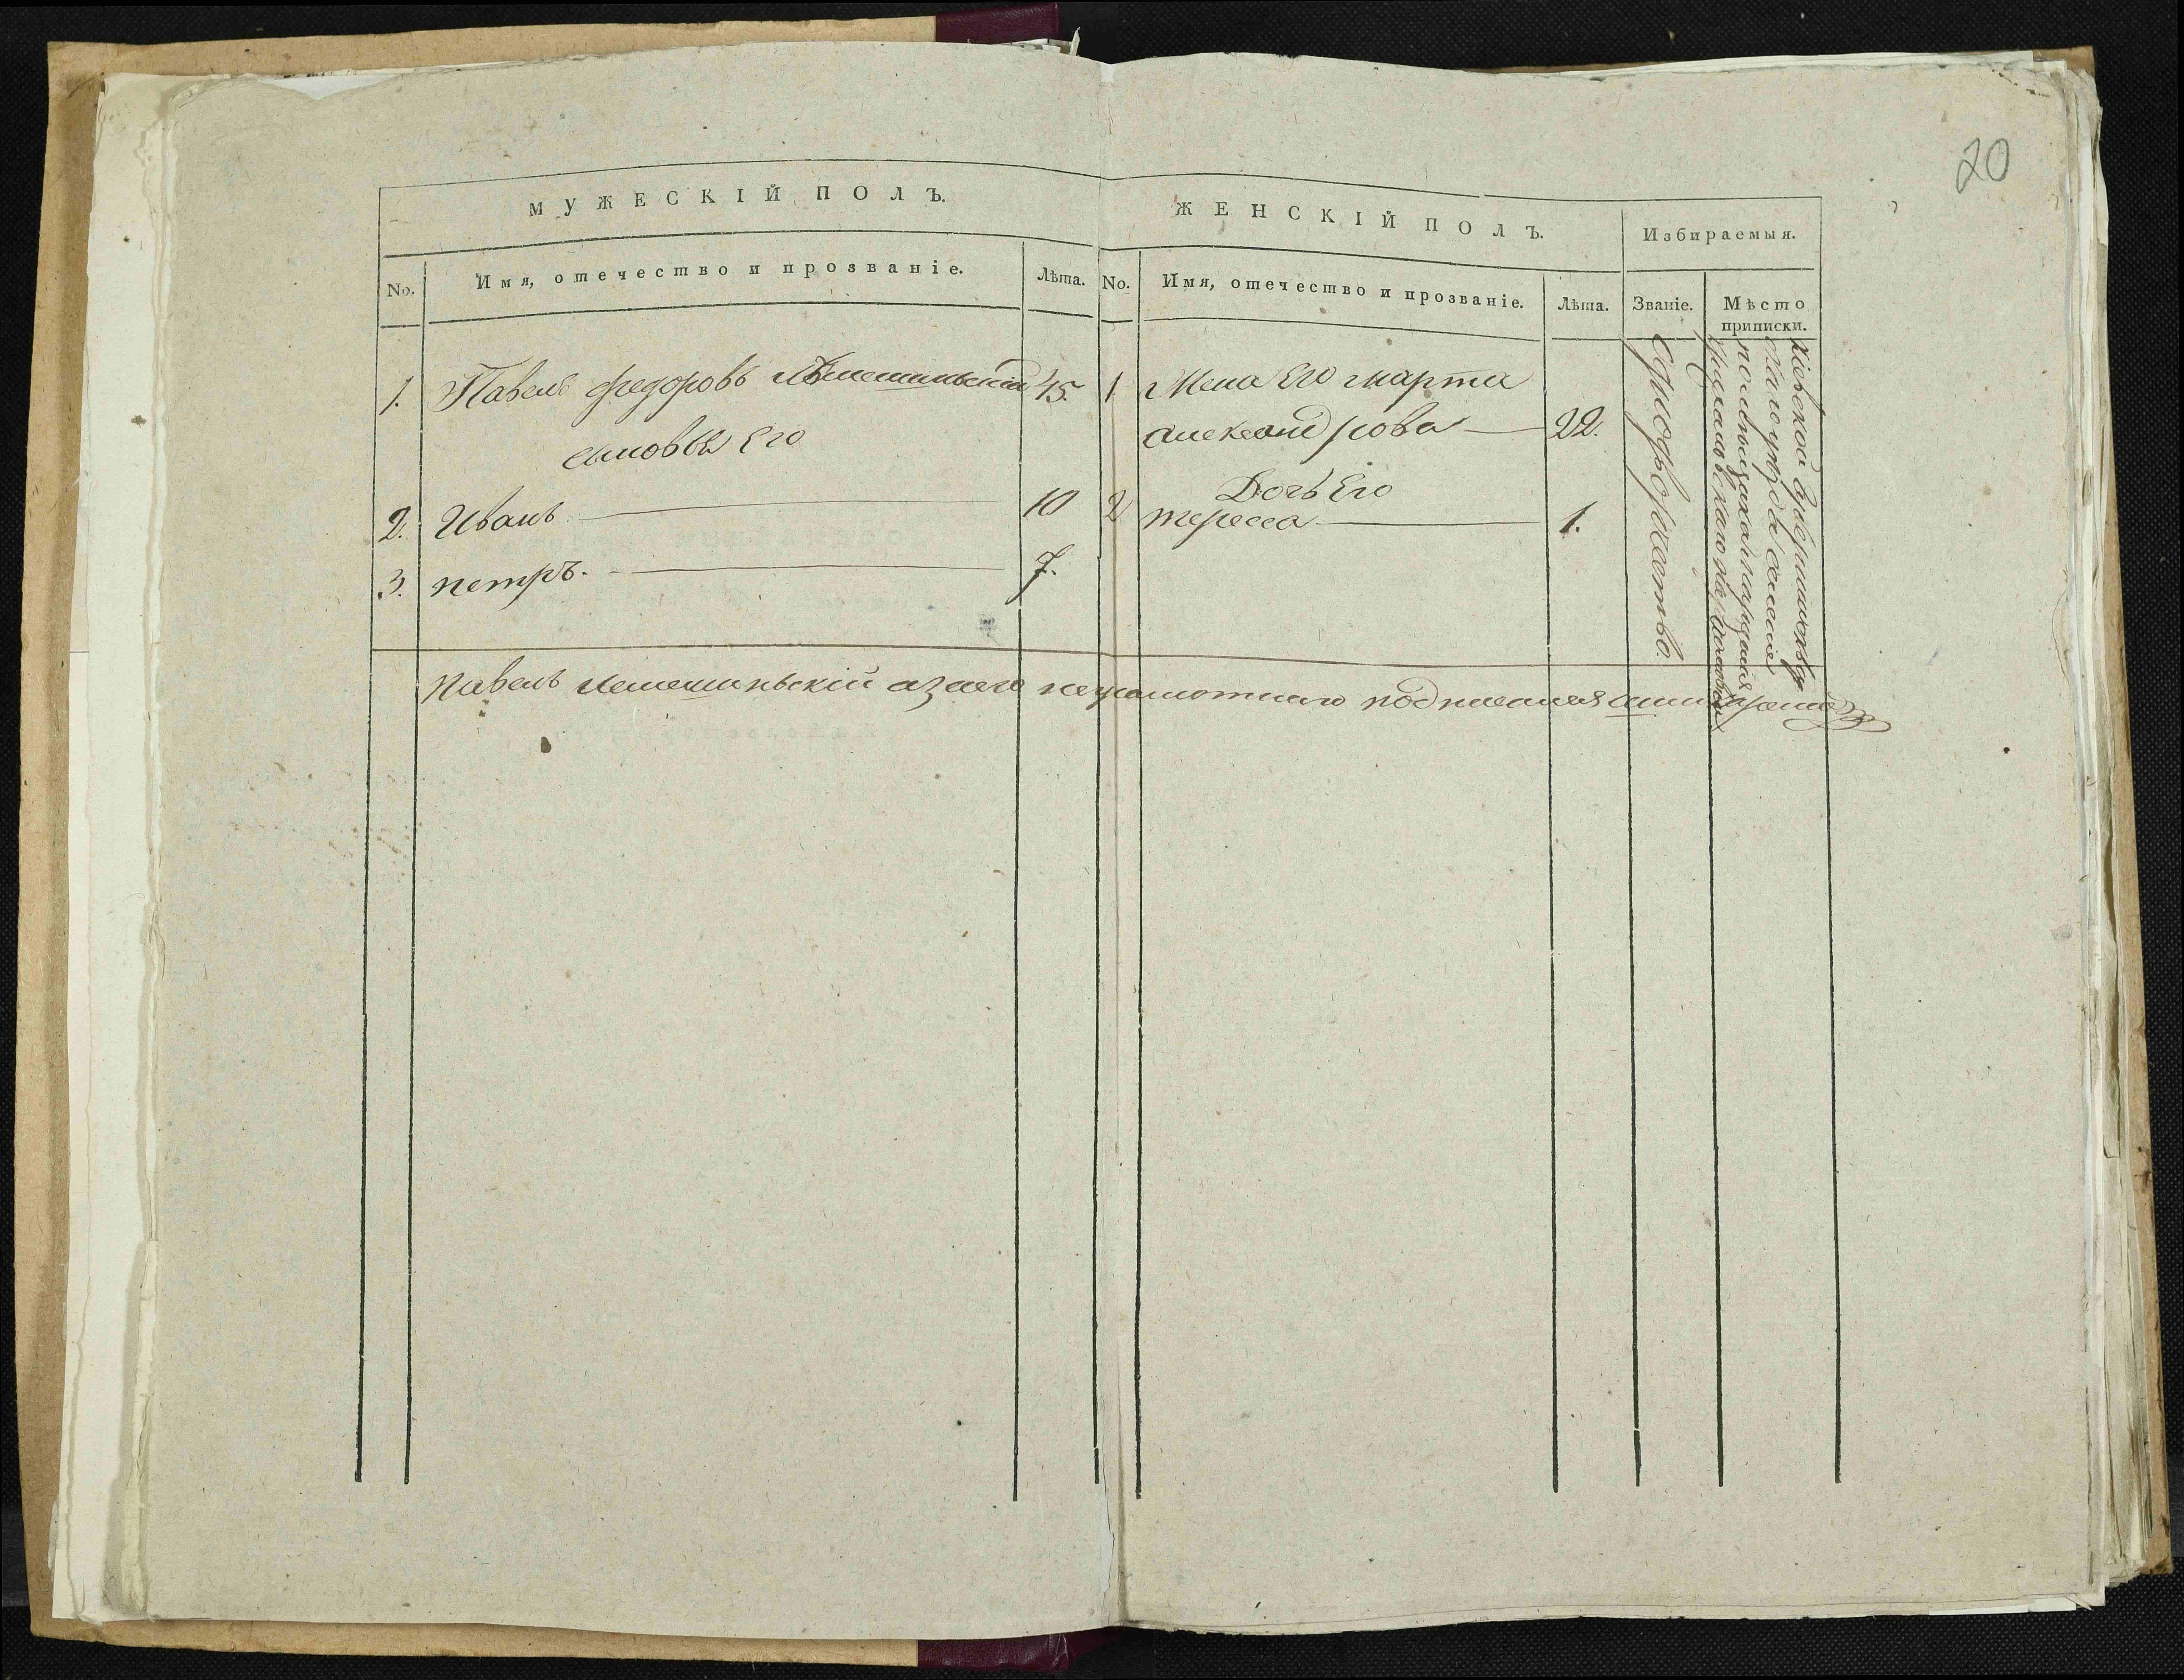 20
МУЖЕСКІЙ ПОЛЪ.
ЖЕНСКІЙ ПОЛЪ.
Избираемыя.
No. Имя, отечество и прозваніе. Лѣта.
No. Имя, отечество и прозваніе. Лѣта. Званіе. Мѣсто
приписки.
1. Павелъ федоровъ 45.
сыновья Его
2. Иванъ 10
3. петръ. 7.
1 Жена Его марта
александрова 22.
Дочь Его
2 тересса 1.
Однодворчество.
Кіевской Губерніи
уѣзда селеніе
павелъ Лемешинскій азаего неграмотнаго подписался